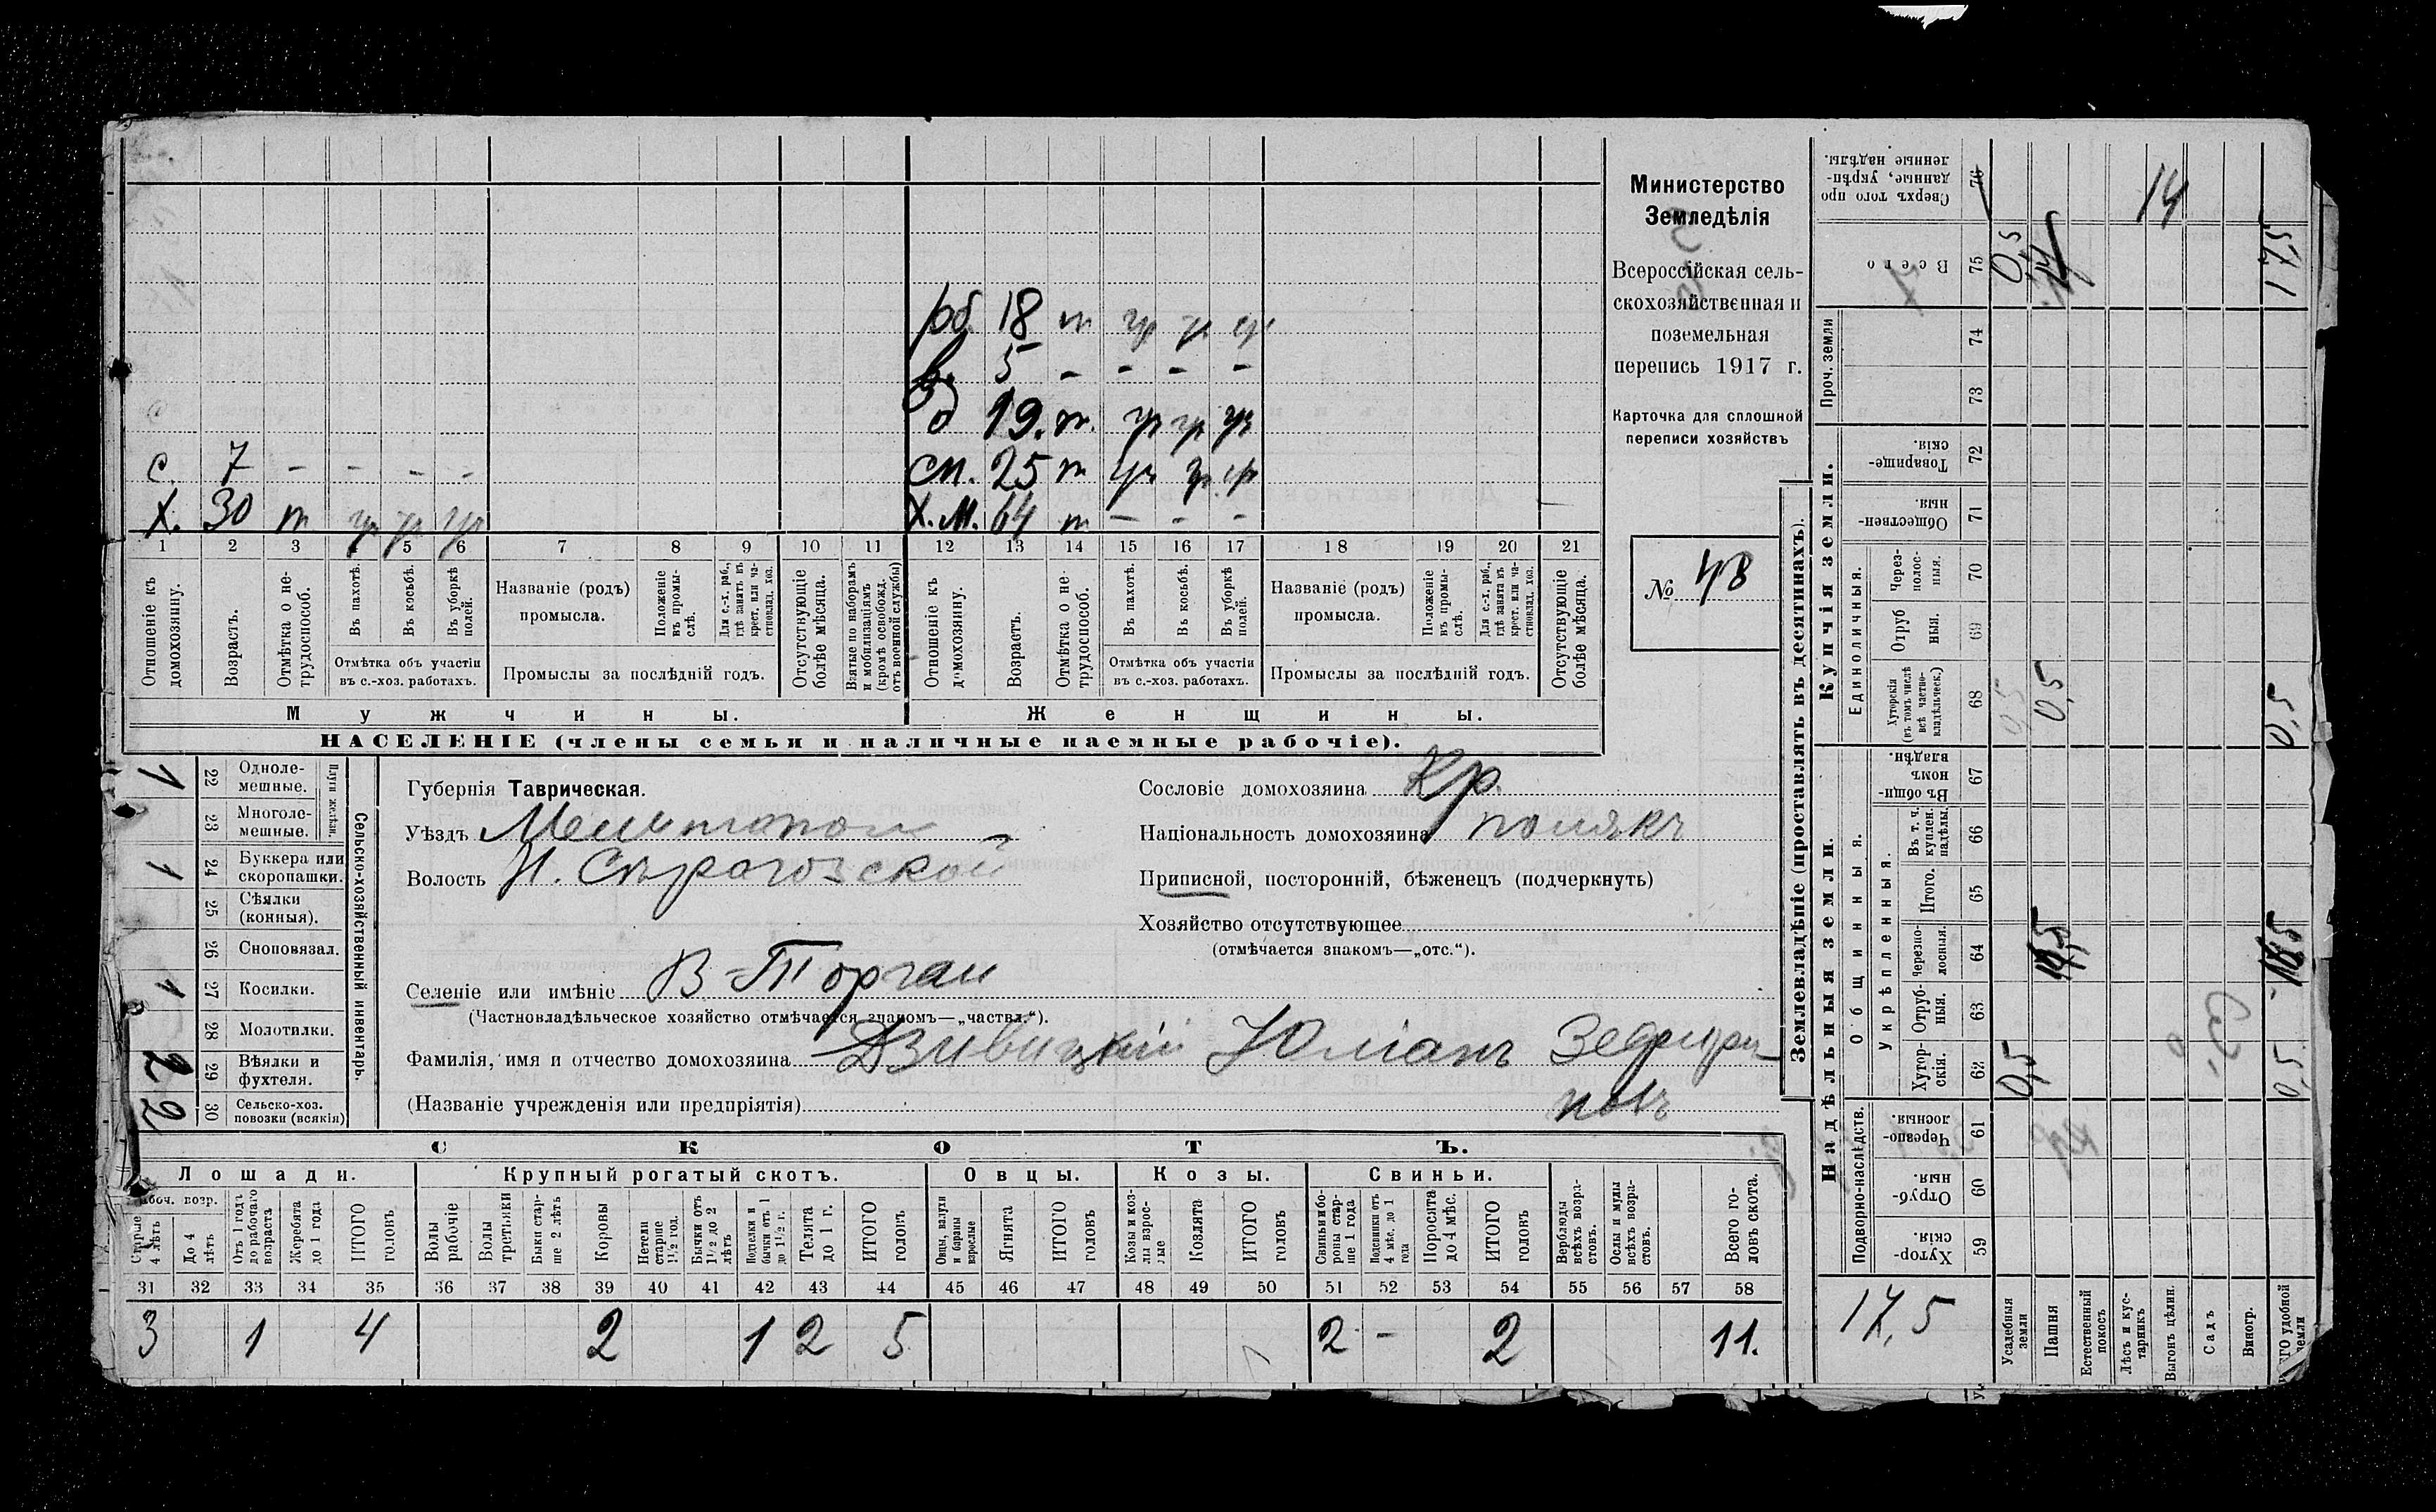 Министерство
Земледѣлія
Всероссійская сель-
скохозяйственная и
поземельная
перепись 1917 г.
Карточка для сплошной
переписи хозяйствъ
№ 48
рб. 18 т
5 - - - -
д 19. т.
с. 7 - - - -
сн. 25 т
Х. 30 т
Х.М. 64 т - - -
1 2 3 4 5 6 7 8 9 10 11 12 13 14 15 16 17 18 19 20 21
Отношеніе къ домохозяину.
Возрастъ.
Отмѣтка о не-трудоспособ.
Въ пахотѣ.
Въ косьбѣ.
Въ уборкѣ полей.
Отмѣтка объ участіи
въ с.-хоз. работахъ.
Названіе (родъ)
промысла.
Положеніе въ промы-слѣ.
Для с.-х. раб., гдѣ занятъ въ крест. или ча-стновлад. хоз.
Промыслы за послѣдній годъ.
Отсутствующіе болѣе мѣсяца.
Взятые по наборамъ и мобилизаціямъ (кромѣ освобожд. отъ военной службы)
Отношеніе къ домохозяину.
Возрастъ.
Отмѣтка о не-трудоспособ.
Въ пахотѣ.
Въ косьбѣ.
Въ уборкѣ полей.
Отмѣтка объ участіи
въ с.-хоз. работахъ.
Названіе (родъ)
промысла.
Положеніе въ промы-слѣ.
Для с.-х. раб., гдѣ занята въ крест. или ча-стновлад. хоз.
Промыслы за послѣдній годъ.
Отсутствующіе болѣе мѣсяца.
Мужчины.
Женщины.
НАСЕЛЕНІЕ (члены семьи и наличные наемные рабочіе).
Сельско-хозяйственный инвентарь.
Плуги желѣзн.
1 22 Одноле-мешные.
23 Многоле-мешные.
1 24 Буккера или скоропашки.
25 Сѣялки (конныя).
26 Сноповязал.
1 27 Косилки.
28 Молотилки.
2 29 Вѣялки и фухтеля.
2 30 Сельско-хоз. повозки (всякія)
Губернія Таврическая.
Уѣздъ Мелитопол
Волость Н. Сѣрогозской
Селеніе или имѣніе В-Торгаи
(Частновладѣльческое хозяйство отмѣчается знакомъ—„частвл.“).
Фамилія, имя и отчество домохозяина Дзивицкій Юліанъ Зефири-
новъ
(Названіе учрежденія или предпріятія)
Сословіе домохозяина Кр.
Національность домохозяина полякъ
Приписной, посторонній, бѣженецъ (подчеркнуть)
Хозяйство отсутствующее
(отмѣчается знакомъ—„отс.“).
СКОТЪ.
Лошади.
Крупный рогатый скотъ.
Овцы.
Козы.
Свиньи.
Рабоч. возр.
Старше 4 лѣтъ
До 4 лѣтъ
Отъ 1 года до рабочаго возраста
Жеребята до 1 года
ИТОГО головъ
Волы рабочіе
Волы третьяки
Быки стар-ше 2 лѣтъ
Коровы
Нетели старше 1½ год.
Бычки отъ 1½ до 2 лѣтъ
Подтелки и бычки отъ 1 до 1½ г.
Телята до 1 г.
ИТОГО головъ
Овцы, валухи и бараны взрослые
Ягнята
ИТОГО головъ
Козы и коз-лы взрос-лые
Козлята
ИТОГО головъ
Свиньи и бо-ровы стар-ше 1 года
Подсвинки отъ 4 мѣс. до 1 года
Поросята до 4 мѣс.
ИТОГО головъ
Верблюды всѣхъ возра-стовъ.
Ослы и мулы всѣхъ возра-стовъ.
Всего го-ловъ скота.
31 32 33 34 35 36 37 38 39 40 41 42 43 44 45 46 47 48 49 50 51 52 53 54 55 56 57 58
3 1 4 2 1 2 5 2 - 2 11.
Землевладѣніе (проставлять въ десятинахъ).
Сверхъ того про
данные, укрѣп-
ленные надѣлы.
76
14
Всего 75
0,5
17,5
Проч. земли
74
73
Купчія земли.
Товарище-скія. 72
Обществен-ныя 71
Единоличныя.
Через-полос-ныя. 70
Отруб ныя. 69
Хуторскія (въ томъ числѣ всѣ частно-владѣльческ.) 68
0,5 0,5 0,5
Надѣльныя земли.
Общинныя.
Въ общи-номъ владѣн. 67
Укрѣпленныя.
Въ т. ч. куплен. надѣлы. 66
Итого. 65
Черезпо-лосныя. 64
Отруб-ныя. 63
Хутор-скія. 62
0,5 0,5
Подворно-наслѣдств.
Черезпо-лосныя. 61
Отруб-ныя. 60
Хутор-скія. 59
17,5
Усадебныя земли
Пашня
Естественный покосъ
Лѣсъ и кус-тарникъ
Выгонъ цѣлин.
Садъ
Виногр.
ИТОГО удобной земли